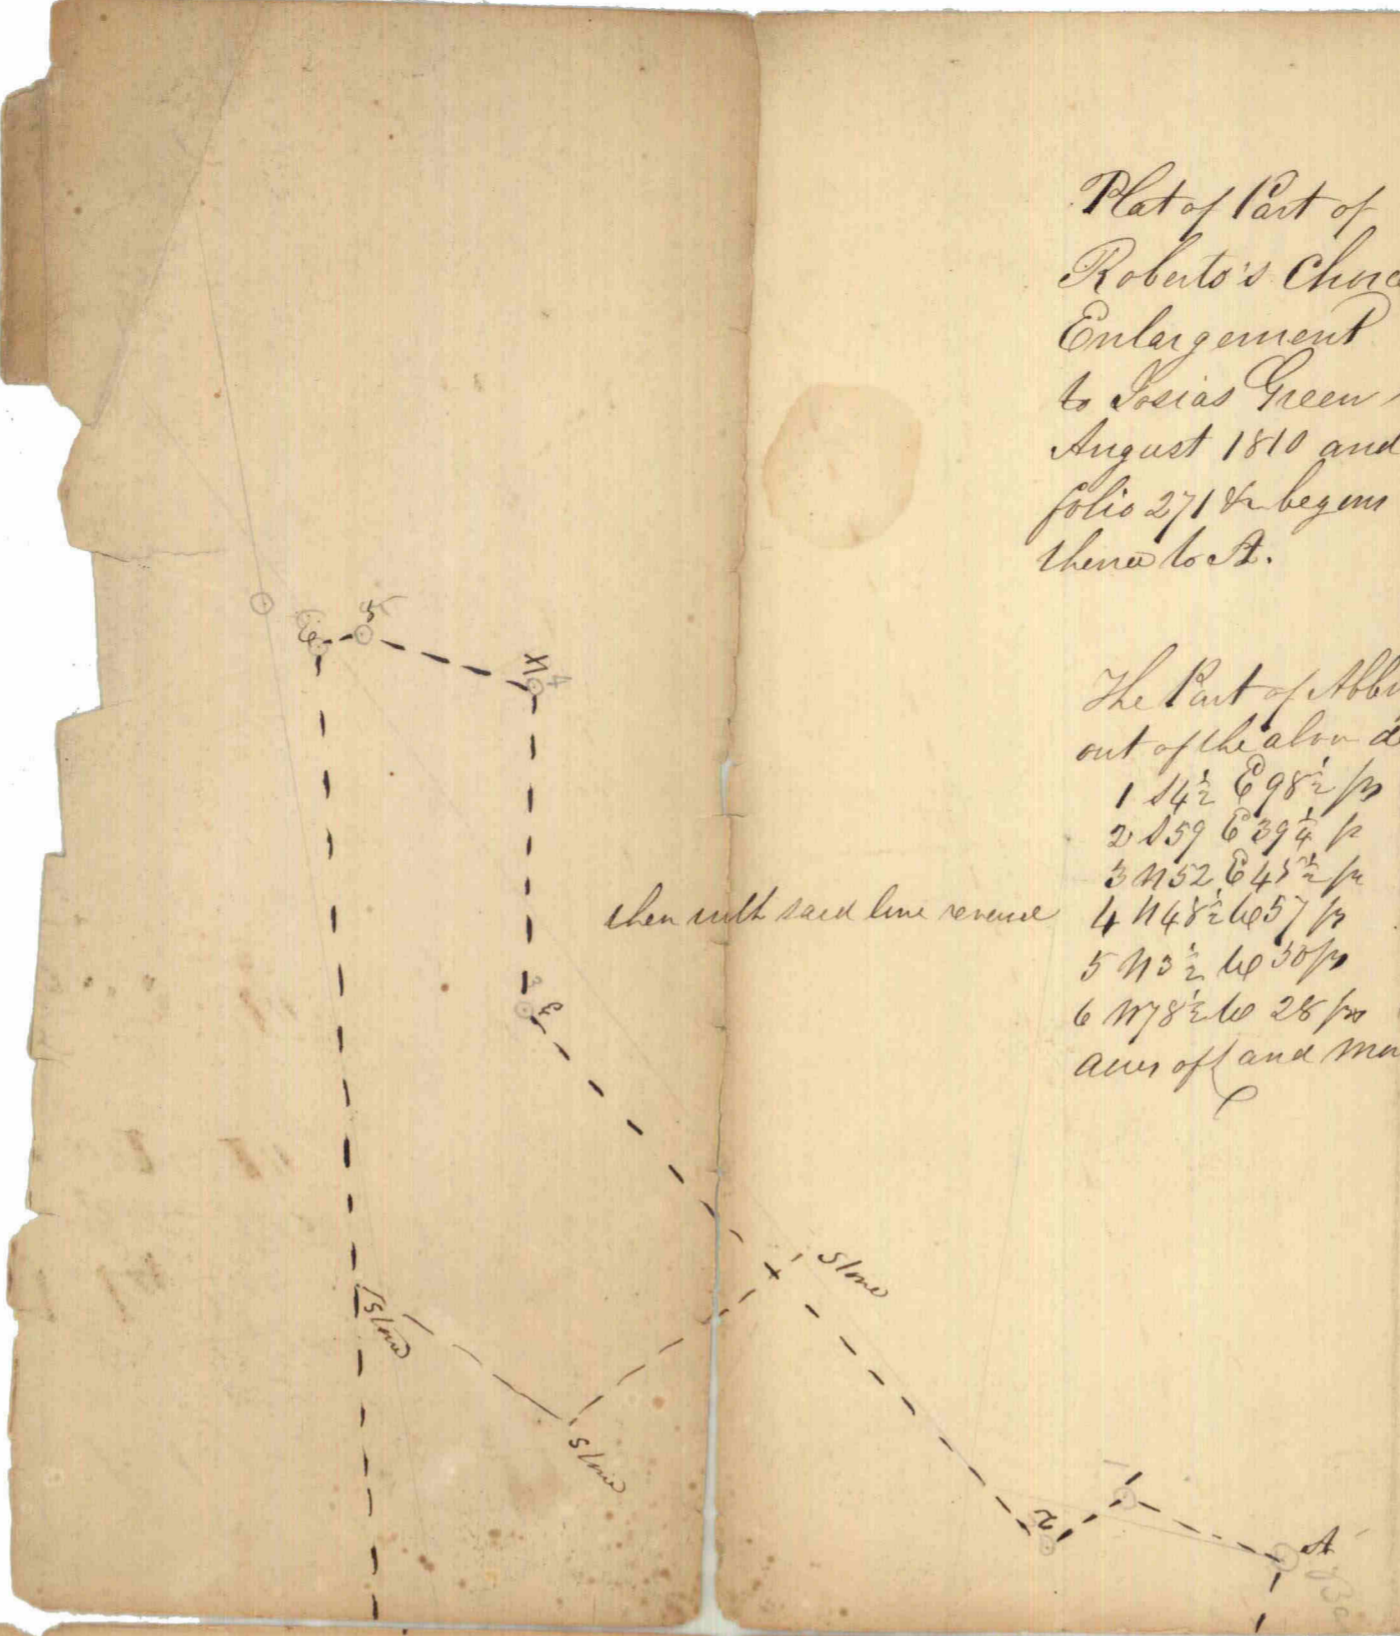 Plat of Part of
Roberts's Choice
Enlargement
to Josias Green
August 1810 and
folio 271 & begins
thence to A.
The Part of
out of the above
1 S4½ E 98½ ps
2 S59 E 39¼ p
3 N52 E 45½ ps
then with said line reverse 4 N48½ W 57 ps
5 N3½ W 50 ps
6 N78½ W 28 ps
acres of land
6
5
4
4
3
3
Stone
Stone
Stone
2
1
A